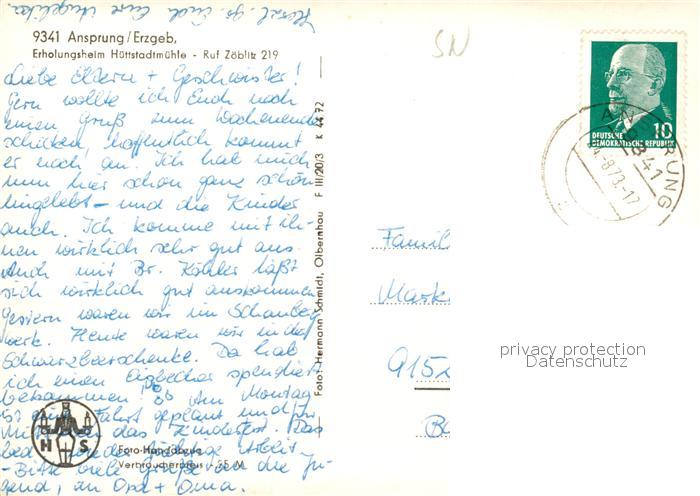 Herzl. gr. Euch Eure Angelika.
9341 Ansprung/Erzgeb,
Erholungsheim Hüttstadtmühle - Ruf Zöblitz 219
Liebe Eltern + Geschwister!
Gern wollte ich Euch noch
einen Gruß zum Wochenende
schicken, hoffentlich kommt
er noch an. Ich hab mich
nun hier schon ganz schön
eingelebt – und die Kinder
auch. Ich komme mit ih-
nen wirklich sehr gut aus.
Auch mit Br. Köhler läßt
sich wirklich gut auskommen.
Gestern waren wir im Schauberg
werk. Heute waren wir in der
Schwarzbeerschenke. Da hab
ich einen Eisbecher spendiert
bekommen! Am Montag
ist eine Fahrt geplant und für
Mittw. das Kinderfest. Das
bed wieder Arbeit.
- Bitte viele Grüße an die Ju-
gend, an Opa + Oma.
H S
Foto-Handabzug
Verbraucherpreis -,25 M
Foto: Hermann Schmidt, Olbernhau F III/20/3 K 44 72
SN
DEUTSCHE
DEMOKRATISCHE REPUBLIK
10
ANSPRUNG
9341
-8.73.-17
Famil
Mark
9152
privacy protection
Datenschutz